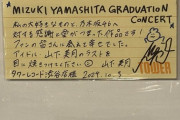 MIZUKI YAMASHITA GRADUATION
CONCERT
私の大好きなものと、乃木坂46に
対する感謝と愛がつまった作品です!
ファンの皆さんに
アイドル 山下美月のラストを
目に焼きつけてください 山下美月
タワーレコード渋谷店様 2024.10.3
TOWER